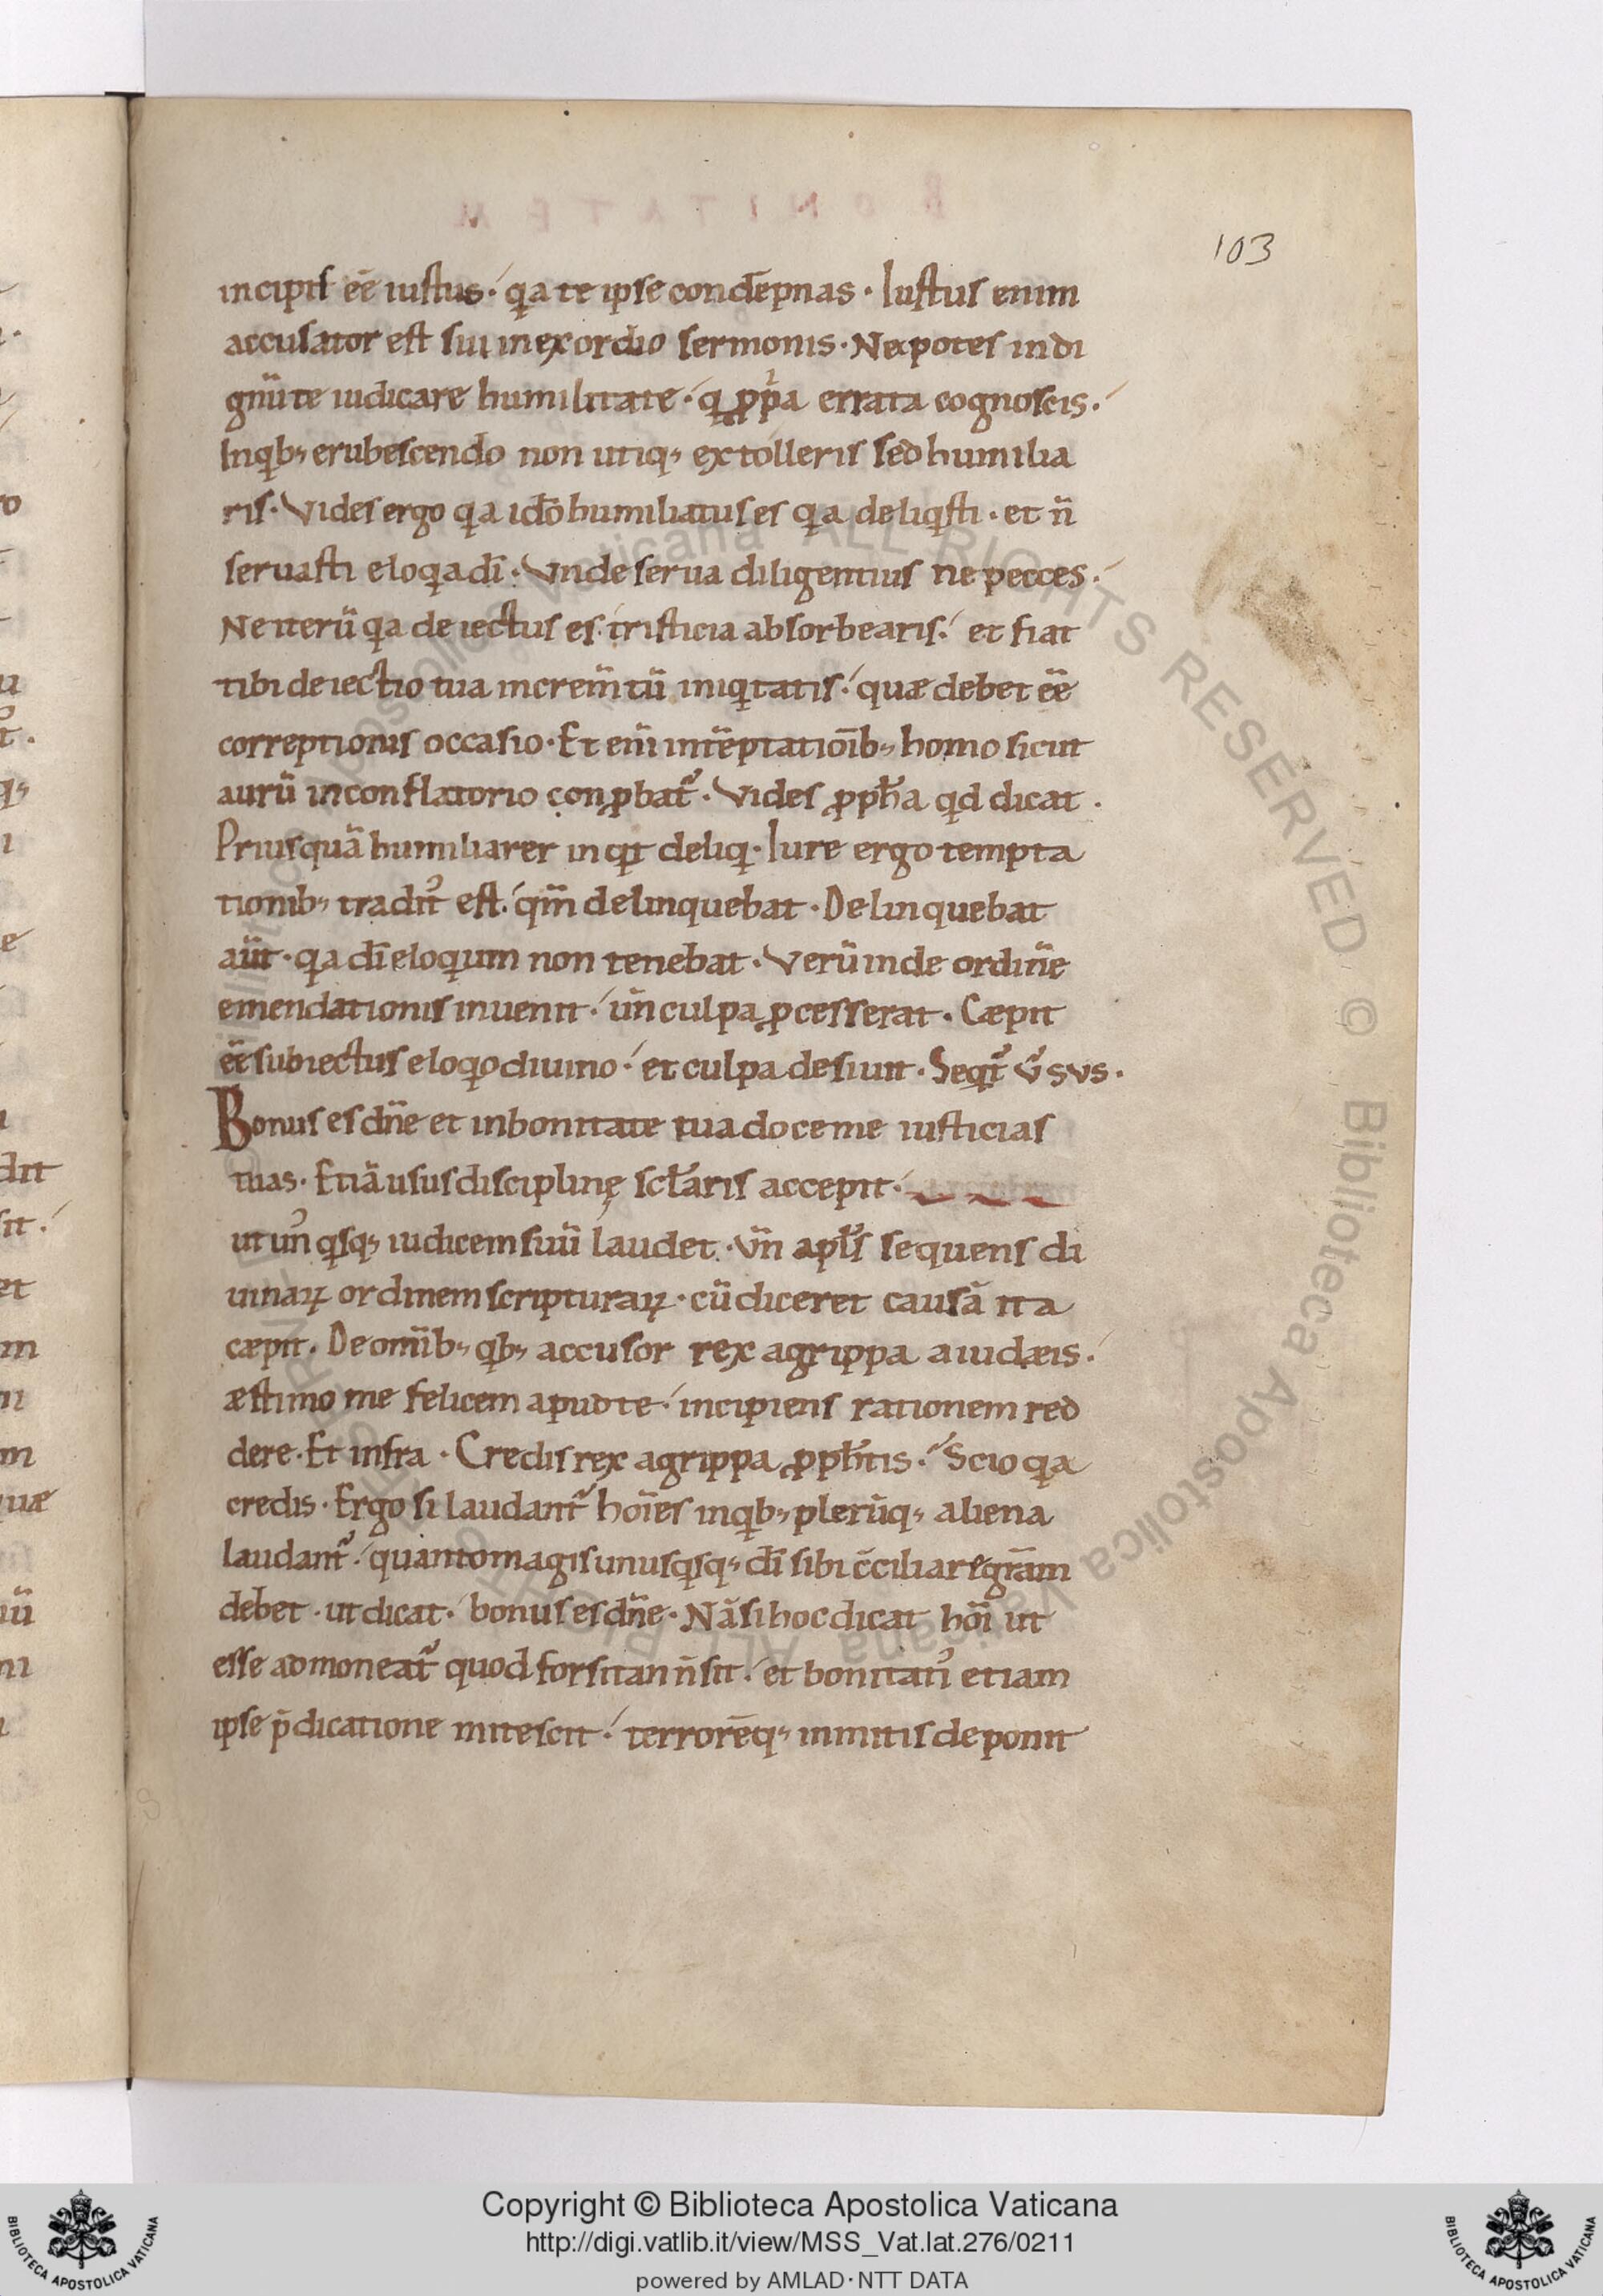 103
incipis eē iustus· q̄a te ipse condēpnas· Iustus enim
accusator est sui in exordio sermonis· Nec potes indi
gnū te iudicare humilitate· q̄ ꝓpⁱa errata cognoscis·
In qⁱb; erubescendo non utiq; extolleris sed humilia
ris· Vides ergo qⁱa idō humiliatus es qⁱa deliqⁱsti· et n̄
seruasti eloqⁱa dī· Vnde serua diligentius ne pecces·
Ne iterū qⁱa deiectus es· tristicia absorbearis· et fiat
tibi deiectio tua increm̄tū iniqⁱtatis· quæ debet eē
correptionis occasio· Et eni͂ in tēptatiōib; homo sicut
aurū in conflatorio conꝓbat᷑· Vides ꝓph̄a qⁱd dicat·
Priusquā humiliarer inqⁱt deliqⁱ· Iure ergo tempta
tionib; tradit᾽ est· qm̄ delinquebat· Delinquebat
aūt· qⁱa dī eloqⁱum non tenebat· Verū inde ordinē
emendationis inuenit· un̄ culpa p̄cesserat· Cæpit
eē subiectus eloqⁱo diuino· et culpa desiuit· Seqⁱt᷑ v᷑svs·
Bonus es dn̄e et in bonitate tua doce me iusticias
tuas· Etiā usus disciplinę sc̄laris accepit·
ut un᾽ qⁱsq; iudicem suū laudet· Vn̄ apl̄s sequens di
uinaꝝ ordinem scripturaꝝ· cū diceret causā ita
cæpit· De omīb; qⁱb; accusor rex agrippa a iudæis·
æstimo me felicem apud te· incipiens rationem red
dere· Et infra· Credis rex agrippa ꝓph̄tis· Scio qⁱa
credis· Ergo si laudant᷑ hoīes in qⁱb; plerūq; aliena
laudant᷑· quanto magis unusqⁱsq; dī sibi c̄ciliare gr̄am
debet· ut dicat· bonus es dn̄e· Nā si hoc dicat hoī ut
esse admoneat᷑ quod forsitan n̄ sit· et bonitati᾽ etiam
ipse p̄dicatione mitescit· terrorēq; inmitis deponit
Copyright © Biblioteca Apostolica Vaticana
http://digi.vatlib.it/view/MSS_Vat.lat.276/0211
powered by AMLAD·NTT DATA
BIBLIOTECA APOSTOLICA VATICANA
BIBLIOTECA APOSTOLICA VATICANA